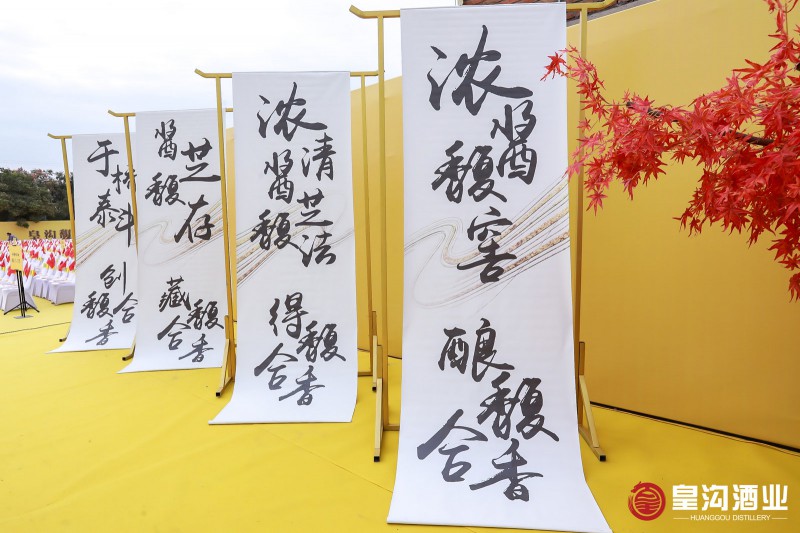 于桥泰斗
创馥合香
酱芝馥存
藏馥合香
浓清酱芝馥法
得馥合香
浓酱馥窖
酿馥合香
皇沟馥
皇沟酒业
HUANGGOU DISTILLERY